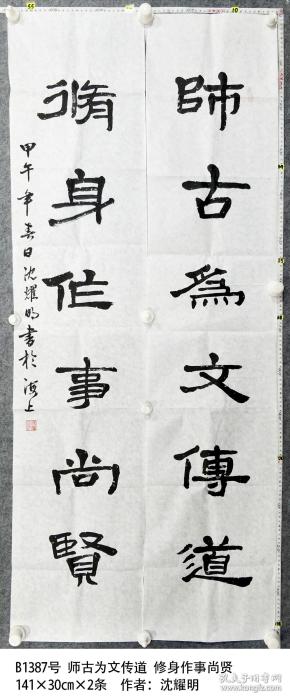 師古為文傳道
脩身作事尚賢
甲午年春日沈耀明書於海上
B1387号 师古为文传道 修身作事尚贤
141×30cm×2条 作者：沈耀明